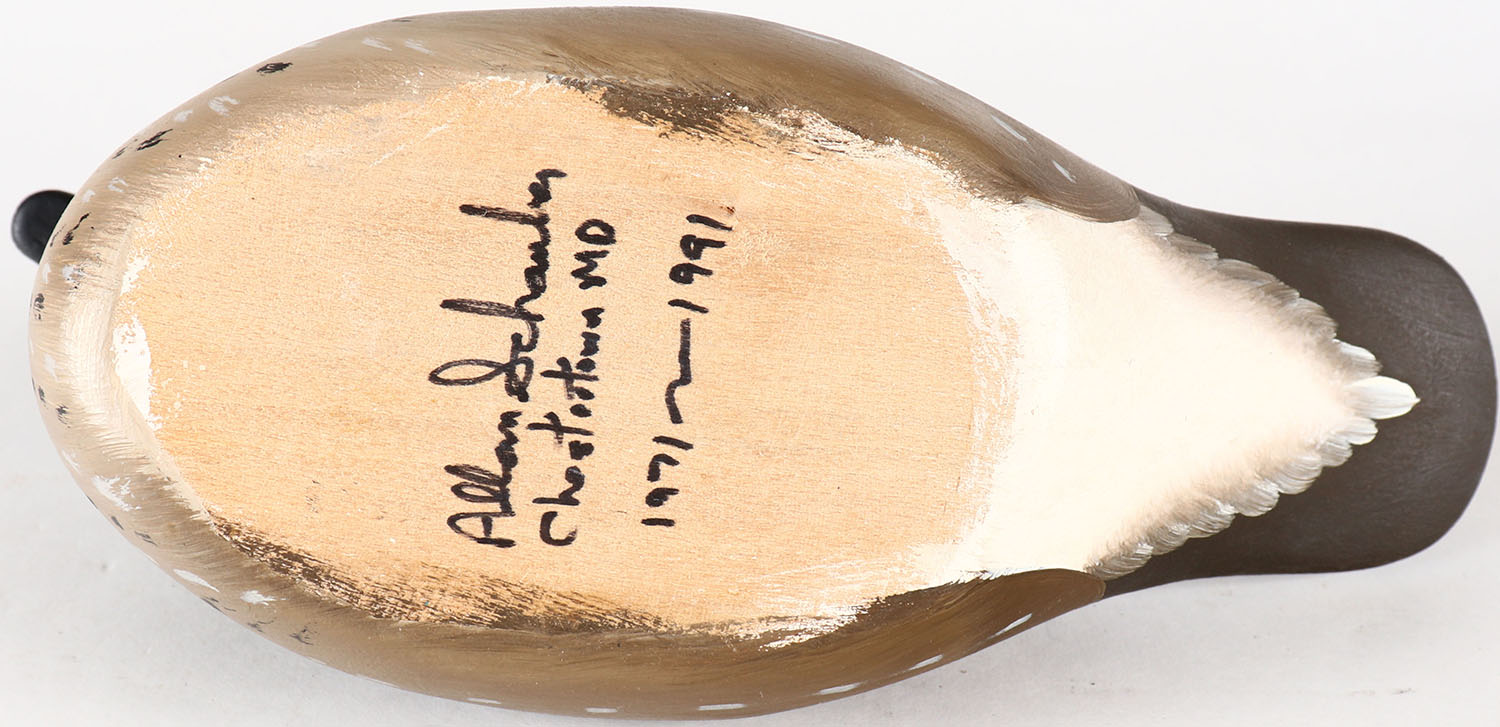 Allan Schauber
Chestertown MD
1971—1991